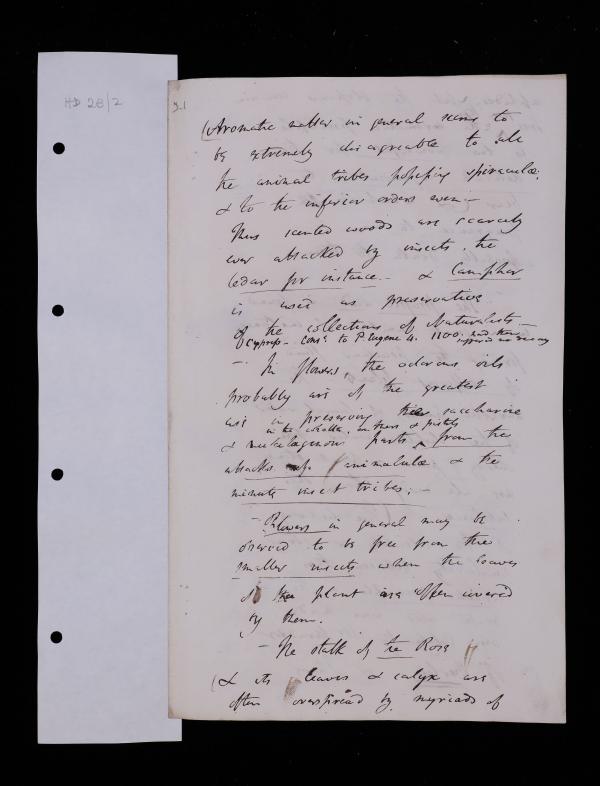 HD 28/2
21
(Aromatic matter in general seems to
be extremely disagreable to all
the animal tribes possessing spiraculæ.
& to the inferior orders even –
Thus scented woods are scarcely
ever attacked by insects. the
Cedar for instance – & Camphor
is used as preservative
of the collections of Naturalists –
of Cypress – to P Eugene 4. 1100. had then
suffered no decay
– In flowers, the odorous oils
probably are of the greatest
use in preserving the saccharine
in the corolla, anthers & pistils
& mucilaginous parts from the
attacks of animalculæ & the
minute insect tribes. –
– Flowers in general may be
observed to be free from the
smaller insects when the leaves
of the plant are often covered
by them.
– The stalk of the Rose
(& its leaves & calyx are
often overspread by myriads of